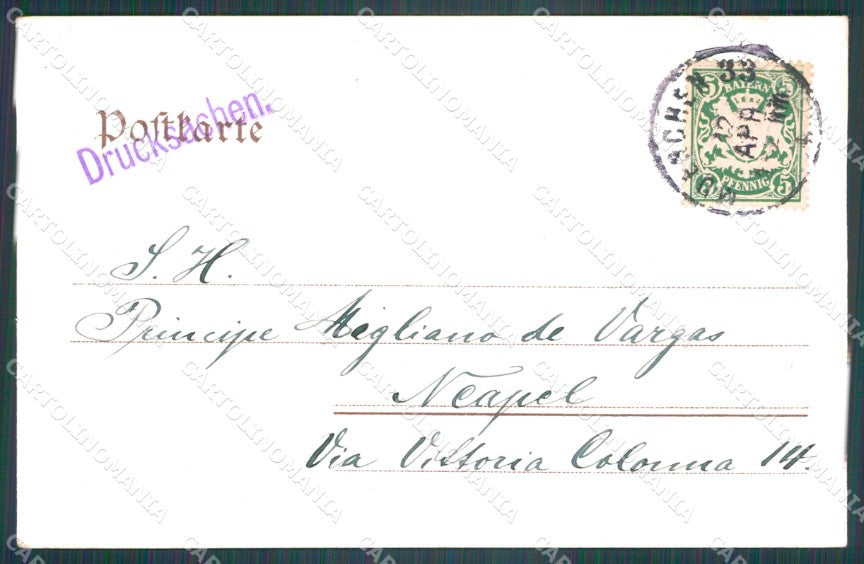 Postkarte
Drucksachen.
MUENCHEN 33
12 APR
BAYERN
5 PFENNIG 5
S. H.
Principe Migliano de Vargas
Neapel
Via Vittoria Colonna 14.
CARTOLINOMANIA